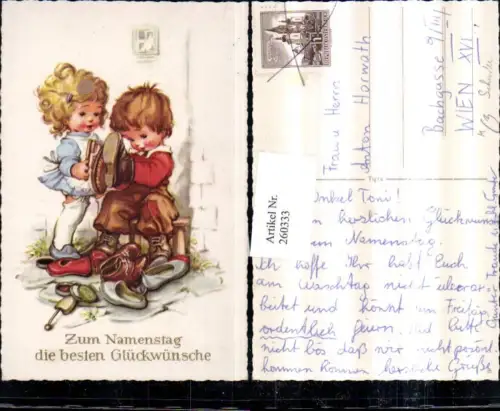 Zum Namenstag
die besten Glückwünsche
Artikel Nr.
260333
Frau u. Herrn
Anton Horwath
Bachgasse 9/III/
WIEN XVI
Onkel Toni!
herzlichen Glückwunsch
zum Namenstag.
Ich hoffe Ihr habt Euch
am Waschtag nicht überar
beitet und könnt am Freitag
ordentlich feiern. Und bitte
nicht bös daß wir nicht persönl.
kommen können herzliche Grüße